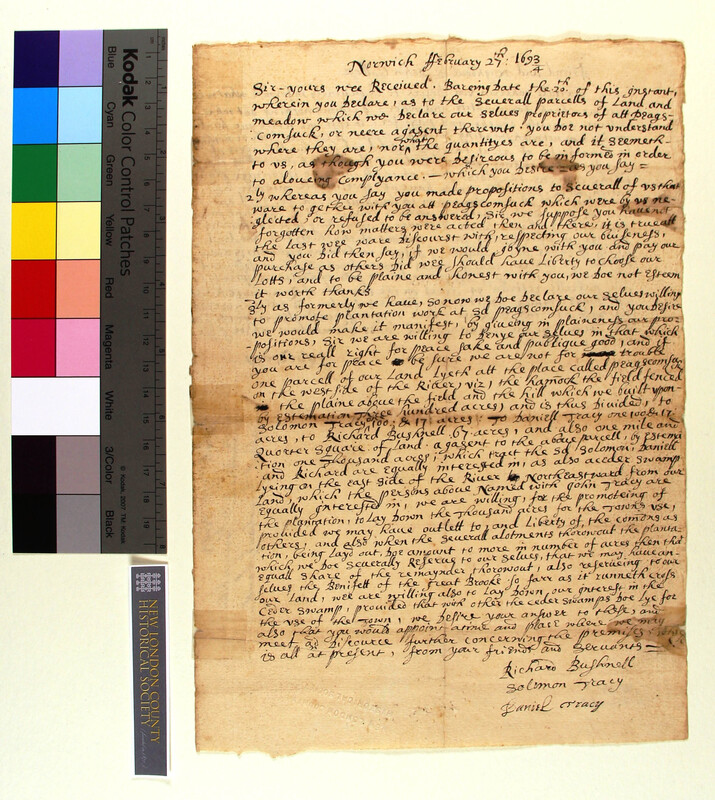 Norwich ffebruary 27th: 1693/4
Sir - yours wee Received. Bareing Date the 20th. of this Instant,
wherein you Declare, as to the Severall parcells of Land and
meadow which we Declare our Selues propriators of att Peags-
comsuck, or neere agasent thereunto you Doe not understand
where they are, nor what the quantityes are, and it Seemeth-
to vs, as though you were Desireous to be informed in order
to aloueing Complyance: - which you Desire - as you say =
2ly whereas you Say you made propositions to Seuerall of vs that
ware to gether with you att peagscomsuck which were by vs ne-
glected or refused to be answered, Sir, we Suppose you haue not
forgotten how matters were acted then and there, it is true att
the Last wee ware Discourst with, respecting our buiseness,
and you Did then Say, if we would joyne with you and pay our
purchase as others Did wee Should have Liberty to choose our
Lotts, and to be plaine and honest with you, we Doe not Esteem
it worth thanks
3ly as formerly we haue, So now we Doe Declare our Selues willing
to promote plantation work at Sd peagscomsuck, and you Desir-
we would make it manifest, by giueing in plaineness our pro-
-positions, Sir we are willing to Denye our Selues in that which
is our reall right for peace Sake and publique good, and if
you are for peace be Sure we are not for trouble
one parcell of our Land Lyeth att the place called peagscomsuck
on the west Side of the Riuer, viz, the hamock the field fenced
the plaine aboue the field and the hill which we built upon-
by Estemation Three hundred acres, and is thus Divided, to
Solomon Tracy 100: & 17½ acres: To Daniell Tracy one 100 & 17½
acres, to Richard Bushnell 67 acres, and also one mile and
Quorter Square of Land, agasent to the aboue parcell, by Estema
ition one Thousand acres, which tract the Sd Solomon, Daniell
and Richard are Equally interested in, as also aceder Swamp
Lyeing on the east Side of the River Northeastward from our
Land, which the persons aboue Named with John Tracy are
Equally Interested in, we are willing, for the promoteing of
the plantation, to Lay Down the Thousand acres for the Towns use,
prouided we may haue outlett to, and Liberty of, the comons as
others, and also when the Seuerall alotments thorowout the planta-
tion, being Layd out, Doe amount to more in number of acres then that
which, we Doe Seuerally Reserue to our Selues, that we may haue an-
Equall Share of the remaynder thorowout, also reserueing to our
Selues the Benifett of the Great Brooke So farr as it runneth cross
our Land, wee are willing also to Lay Down, our Interest in the
Ceder Swamp, prouided that other the ceder Swamps Doe Lye for
the use of the Town, we Desire your answer to these, and
also that you would appoint a time and place where we may
meet & Discource further concerning the premises
is all at present, from your friends and Seruants =
Richard Bushnell
Solomon Tracy
Daniel Tracy
Kodak Color Control Patches
© Kodak, 2007 TM: Kodak
Blue
Cyan
Green
Yellow
Red
Magenta
White
3/Color
Black
1
2
3
4
5
6
7
8
9
10
11
12
13
14
15
16
17
18
19
NEW LONDON COUNTY
HISTORICAL SOCIETY